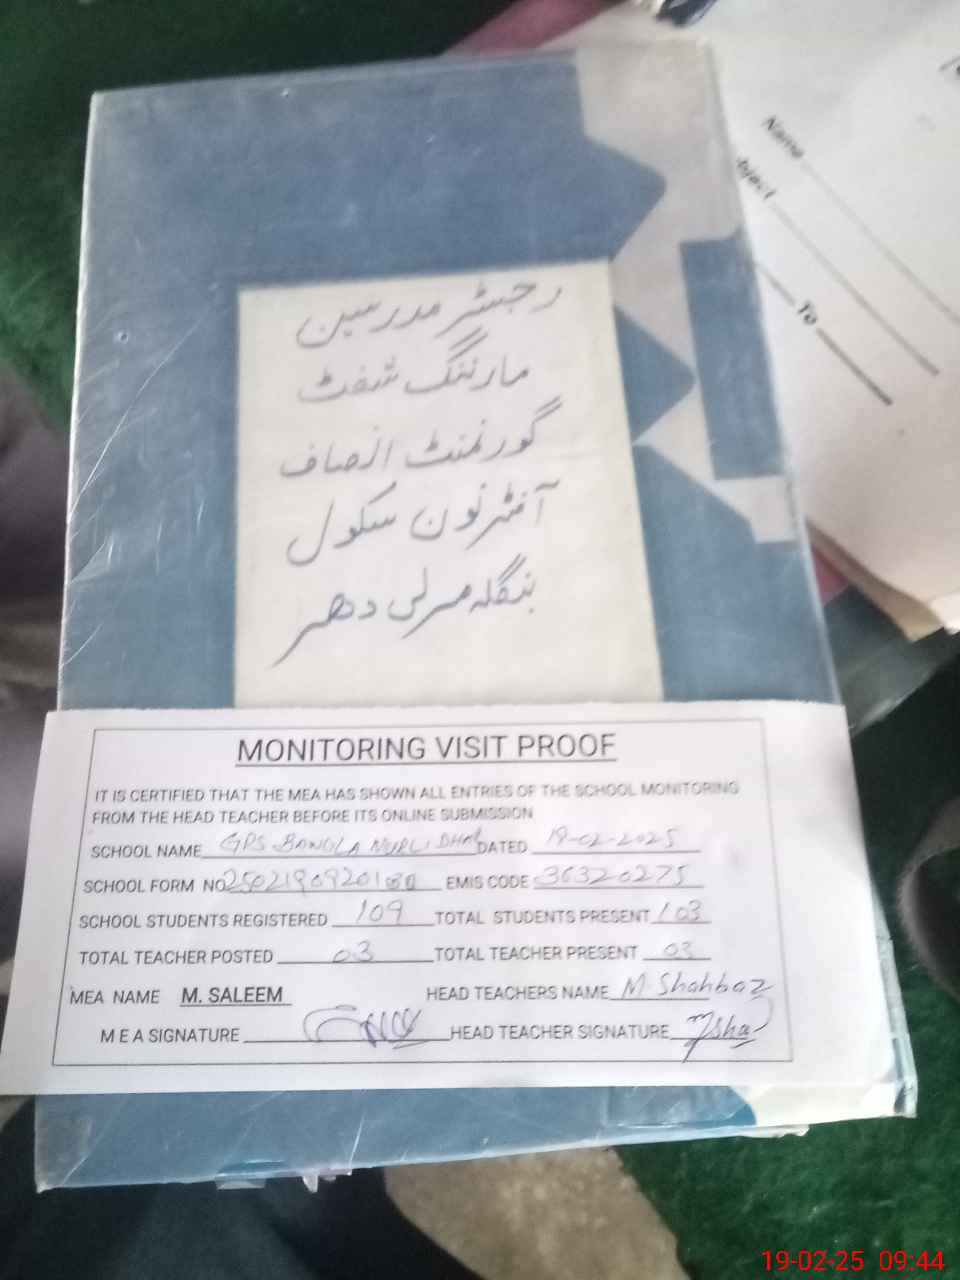 رجسٹر مدرسین
مارننگ شفٹ
گورنمنٹ انصاف
آفٹرنون سکول
بنگلہ مرلی دھر
Name
bject
To
MONITORING VISIT PROOF
IT IS CERTIFIED THAT THE MEA HAS SHOWN ALL ENTRIES OF THE SCHOOL MONITORING
FROM THE HEAD TEACHER BEFORE ITS ONLINE SUBMISSION
SCHOOL NAME GPS BANGLA DATED 19-02-2025
SCHOOL FORM NO EMIS CODE 36320275
SCHOOL STUDENTS REGISTERED 109 TOTAL STUDENTS PRESENT 103
TOTAL TEACHER POSTED 03 TOTAL TEACHER PRESENT 03
MEA NAME M. SALEEM HEAD TEACHERS NAME M Shahbaz
M E A SIGNATURE HEAD TEACHER SIGNATURE
19-02-25 09:44